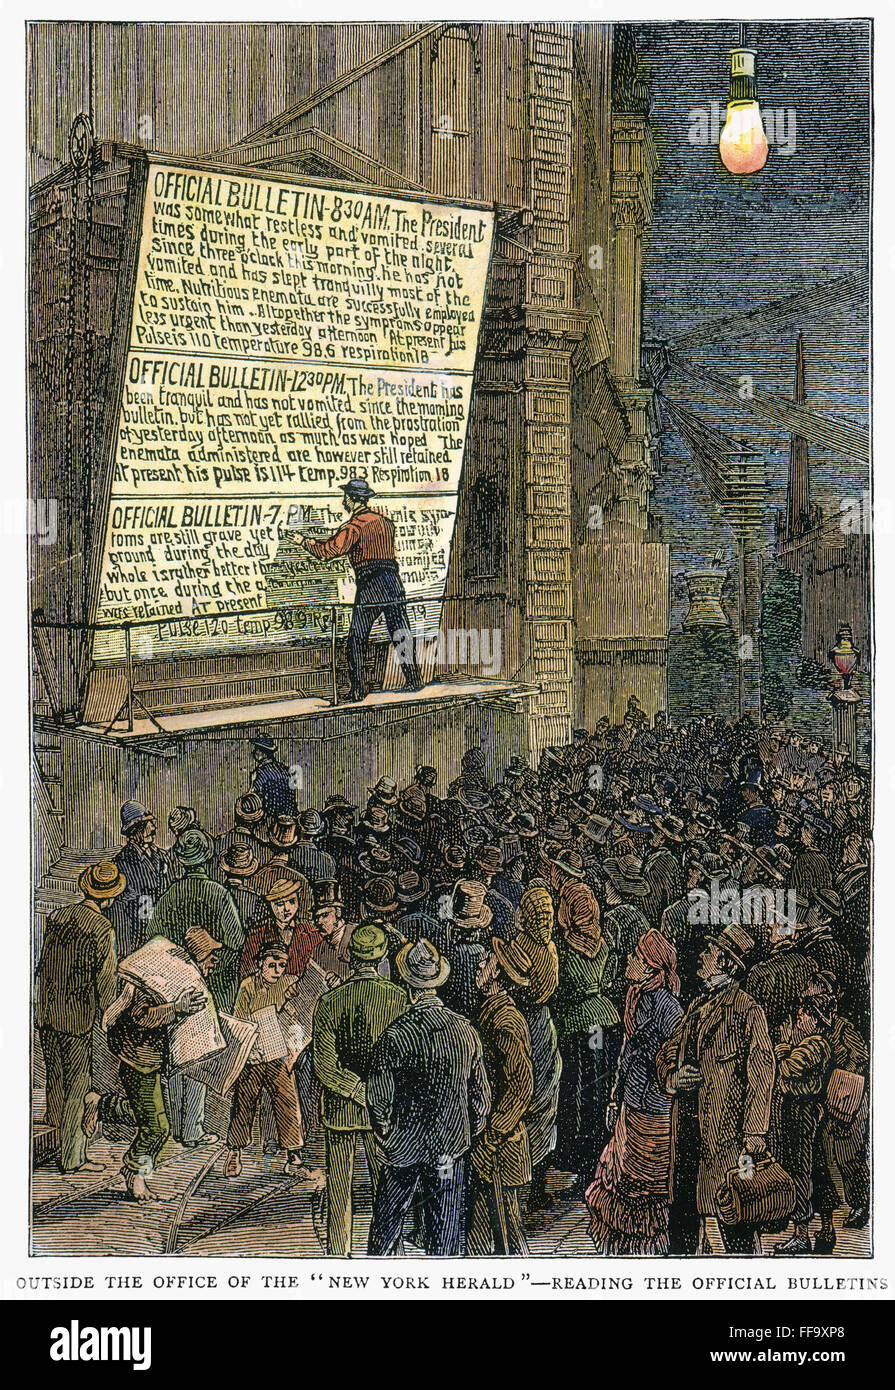 OFFICIAL BULLETIN-830AM. The President
was somewhat restless and vomited several
times during the early part of the night.
since three o'clock this morning. he has not
vomited and has slept tranquilly most of the
time. Nutritious enemata are successfully employed
to sustain him. Altogether the symptoms appear
less urgent than yesterday afternoon At present his
Pulse is 110 temperature 98.6 respiration 18
OFFICIAL BULLETIN-1230PM. The President has
been tranquil and has not vomited since the morning
bulletin. but has not yet rallied from the prostration
of yesterday afternoon as much as was hoped The
enemata administered are however still retained.
At present his pulse is 114 temp. 983 Respiration 18
OFFICIAL BULLETIN-7. PM. The symp-
toms are still grave yet
ground during the day
whole is rather better than yesterday
but once during the
was retained At present
Pulse 120 temp 98.9 Re 19
OUTSIDE THE OFFICE OF THE "NEW YORK HERALD"—READING THE OFFICIAL BULLETINS
alamy
alamy
a
a
a
alamy
Image ID: FF9XP8
www.alamy.com